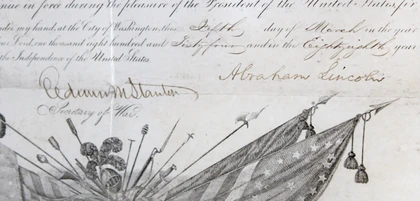 ue in force during the pleasure of the President of the United States for
under my hand, at the City of Washington, this Fifth day of March in the year
our Lord, one thousand eight hundred and Sixty four and in the Eighty eighth year
the Independence of the United States.
Abraham Lincoln
Edwin M Stanton
Secretary of War.